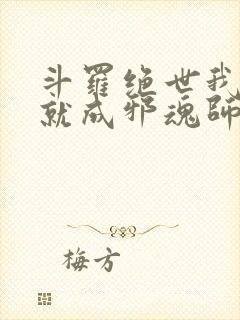 斗羅绝世我
就成邪魂師
梅方